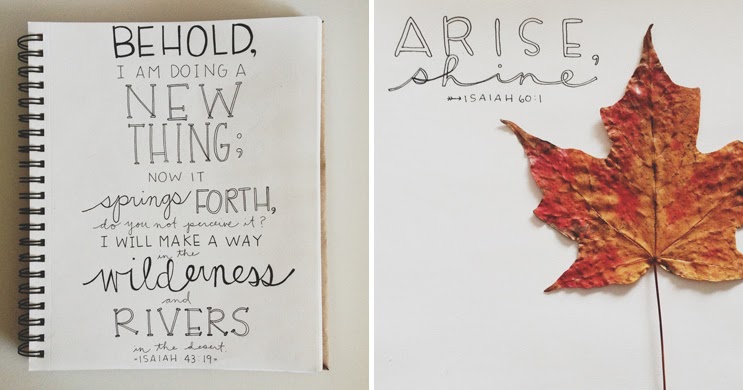 BEHOLD,
I AM DOING A
NEW
THING;
NOW IT
springs FORTH,
do you not perceive it?
I WILL MAKE A WAY
in the
wilderness
and
RIVERS
in the desert.
-ISAIAH 43:19-
ARISE,
shine
ISAIAH 60:1